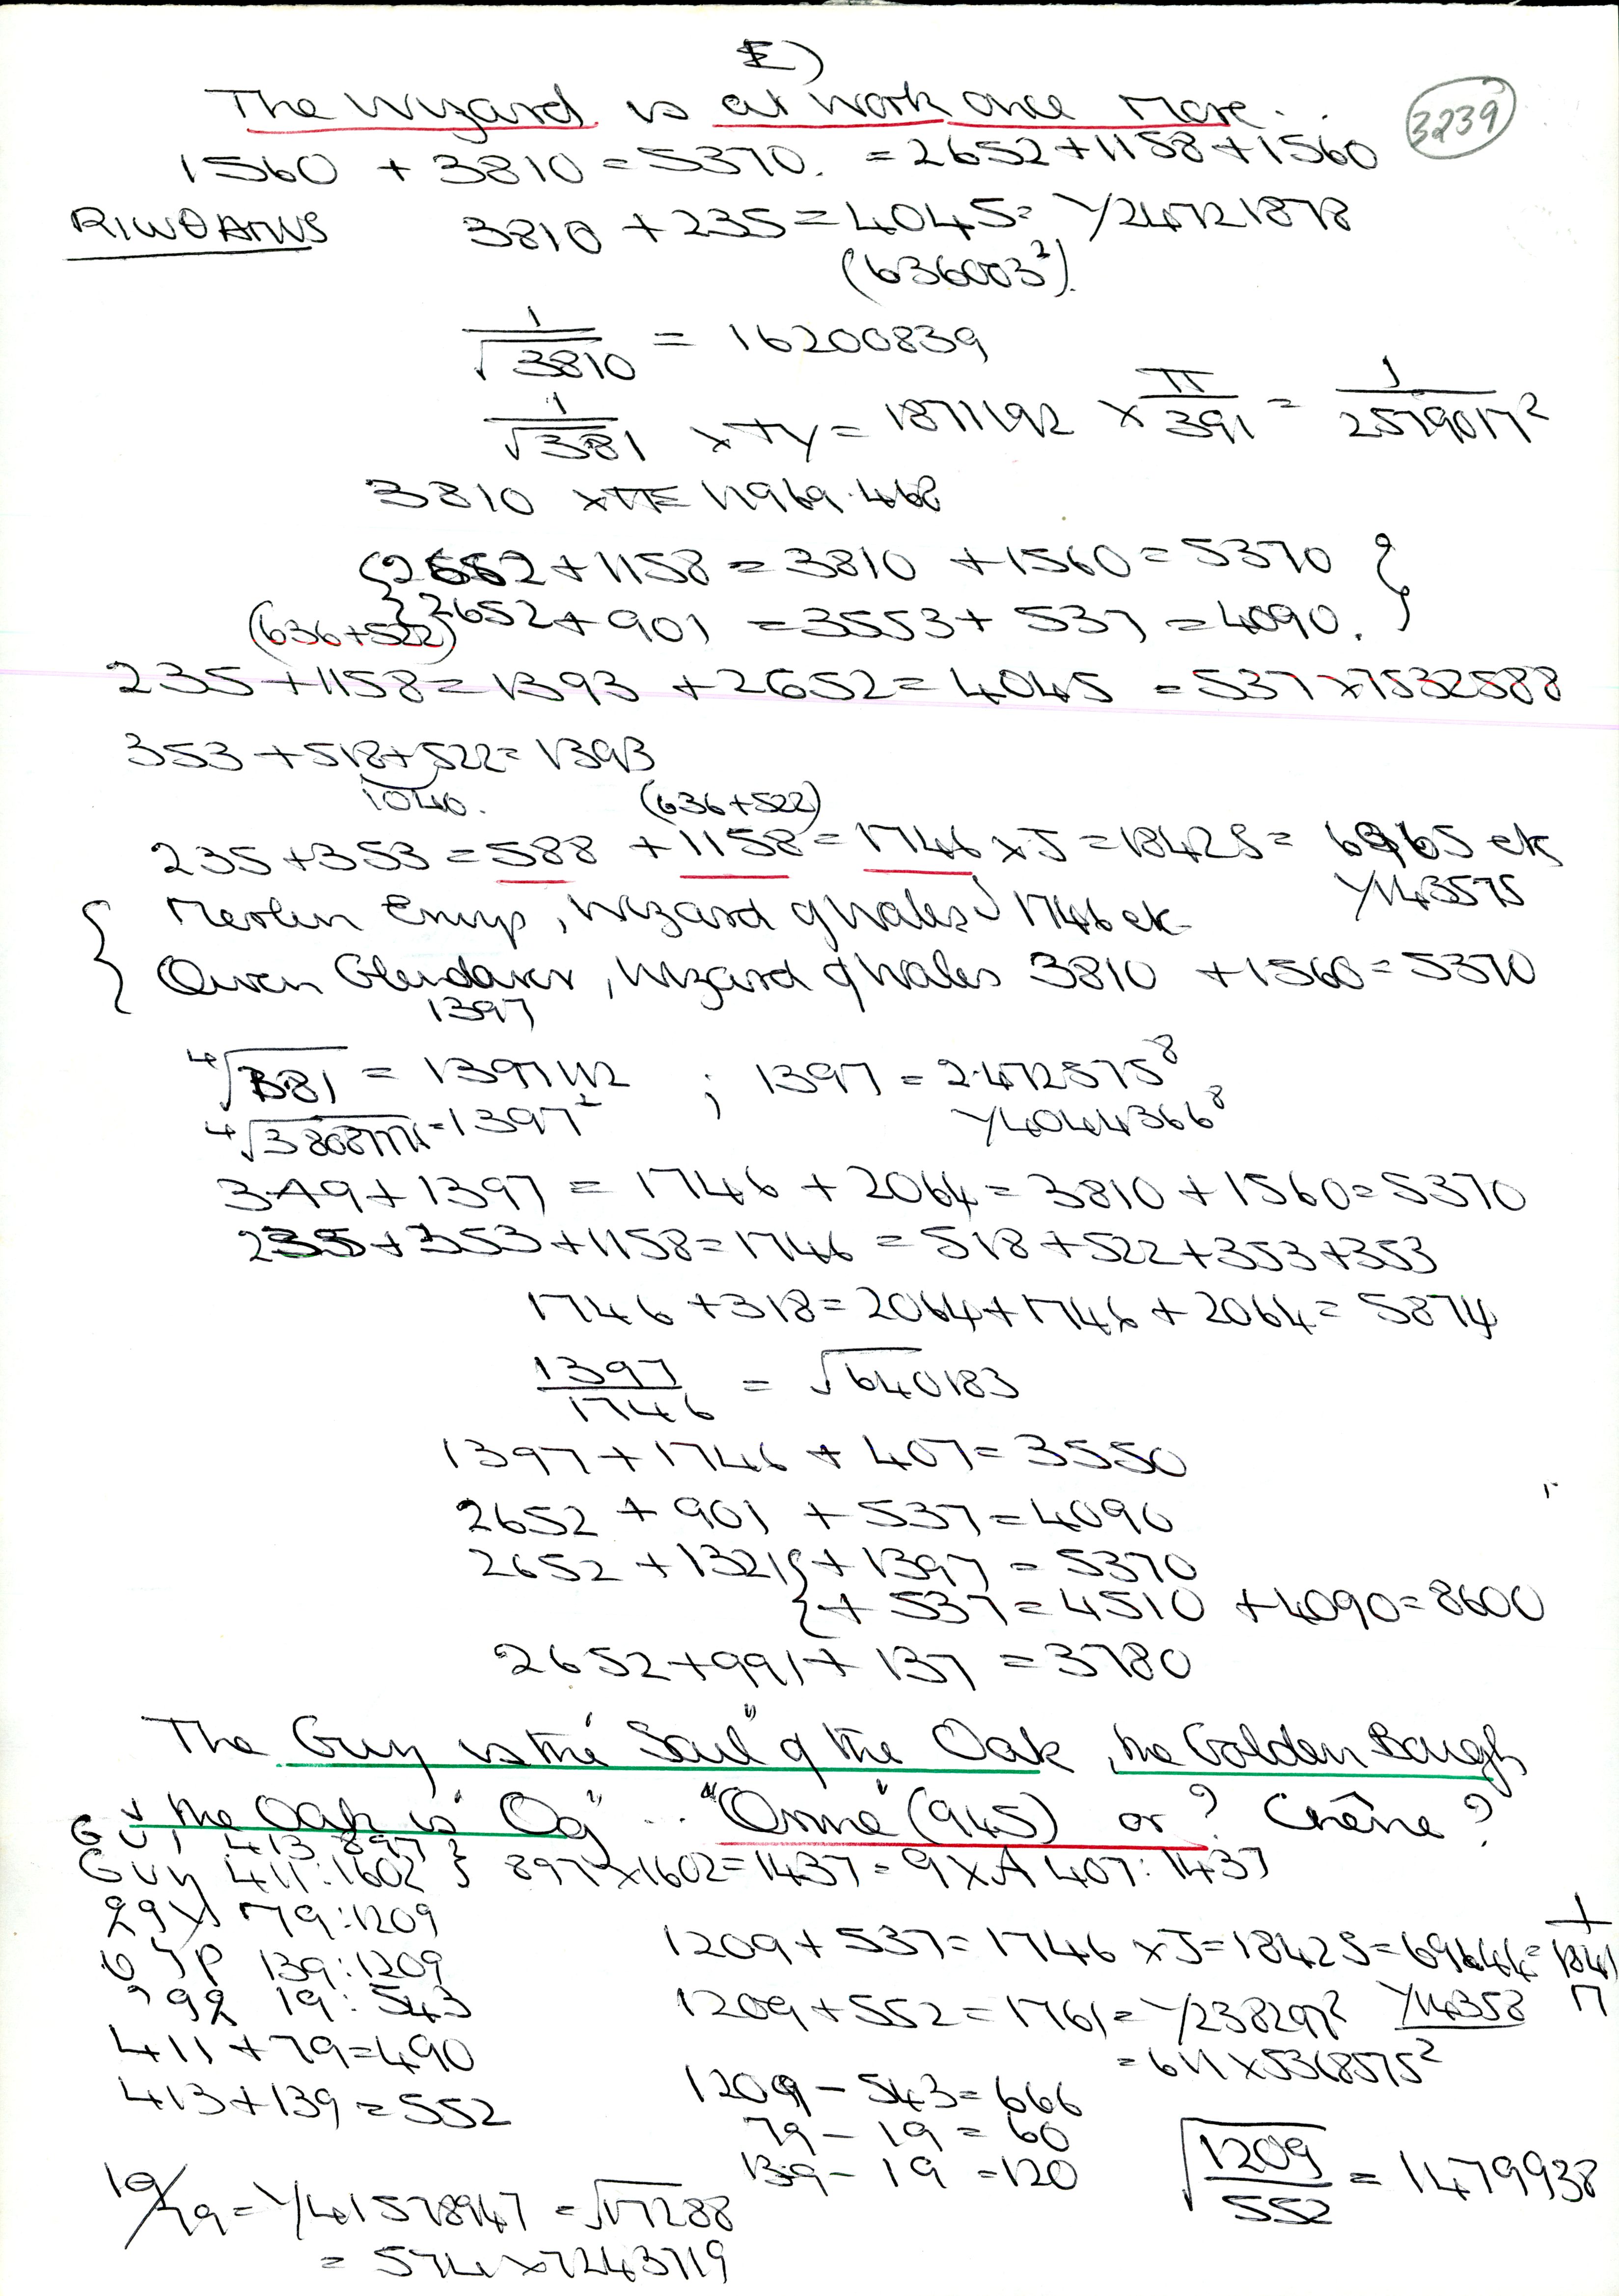 E)
The Wizard is at work once more..
3239
1560 + 3810 = 5370. = 2652 + 1158 + 1560
3810 + 235 = 4045 = Y24721878
(636003²).
1/√3810 = 16200839
1/√381 x TY = 1871192 x π/391 = 1/2579017²
3810 x π = 11969.468
{2652 + 1158 = 3810 + 1560 = 5370}
}2652 + 901 = 3553 + 537 = 4090.
(636+522)
235 + 1158 = 1393 + 2652 = 4045 = 537 x 7532588
353 + 518 + 522 = 1393
1040.
(636+522)
235 + 353 = 588 + 1158 = 1746 x J = 18425 = 6965 ek
Y143575
{ Merlin Emrys, Wizard of Wales) 1746 ek
Owen Glendower, Wizard of Wales 3810 + 1560 = 5370
1397
⁴√381 = 1397112 ; 1397 = 2.472575⁸
⁴√3808777 = 1397² Y4044366⁸
349 + 1397 = 1746 + 2064 = 3810 + 1560 = 5370
235 + 353 + 1158 = 1746 = 518 + 522 + 353 + 353
1746 + 318 = 2064 + 1746 + 2064 = 5874
1397/1746 = √640183
1397 + 1746 + 407 = 3550
2652 + 901 + 537 = 4090
2652 + 1321 { + 1397 = 5370
{ + 537 = 4510 + 4090 = 8600
2652 + 991 + 137 = 3780
The Guy is the "Soul" of the Oak, the Golden Bough
& the Oak is "Og" .. "Orme" (945) or? Chêne?
GUI 413:897 }
Guy 411:1602 } 897 x 1602 = 1437 = 9 x A 407:1437
79:1209
139:1209
19:543
411 + 79 = 490
413 + 139 = 552
19/79 = Y41578947 = √17288
= 574 x 7243719
1209 + 537 = 1746 x J = 18425 = 69644 = 1/1841 π
1209 + 552 = 1761 = Y238297² Y14358
= 611 x 5368575²
1209 - 543 = 666
79 - 19 = 60
139 - 19 = 120
√1209/552 = 1479938